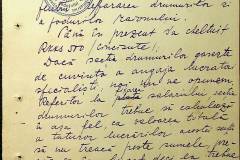 pentru repararea drumurilor și
a podurilor raionului.
Până în prezent s'a cheltuit
Rks 500 /cincisute/.
Dacă secția drumurilor găsește
de cuviință a angaja lucrători
specialiști, noi nu ne opunem.
Referitor la plata salariului secția
drumurilor trebue să calculeze
în așa fel, ca valoarea totală
a tuturor lucrărilor aceste
să nu treacă peste sumele,
trebue